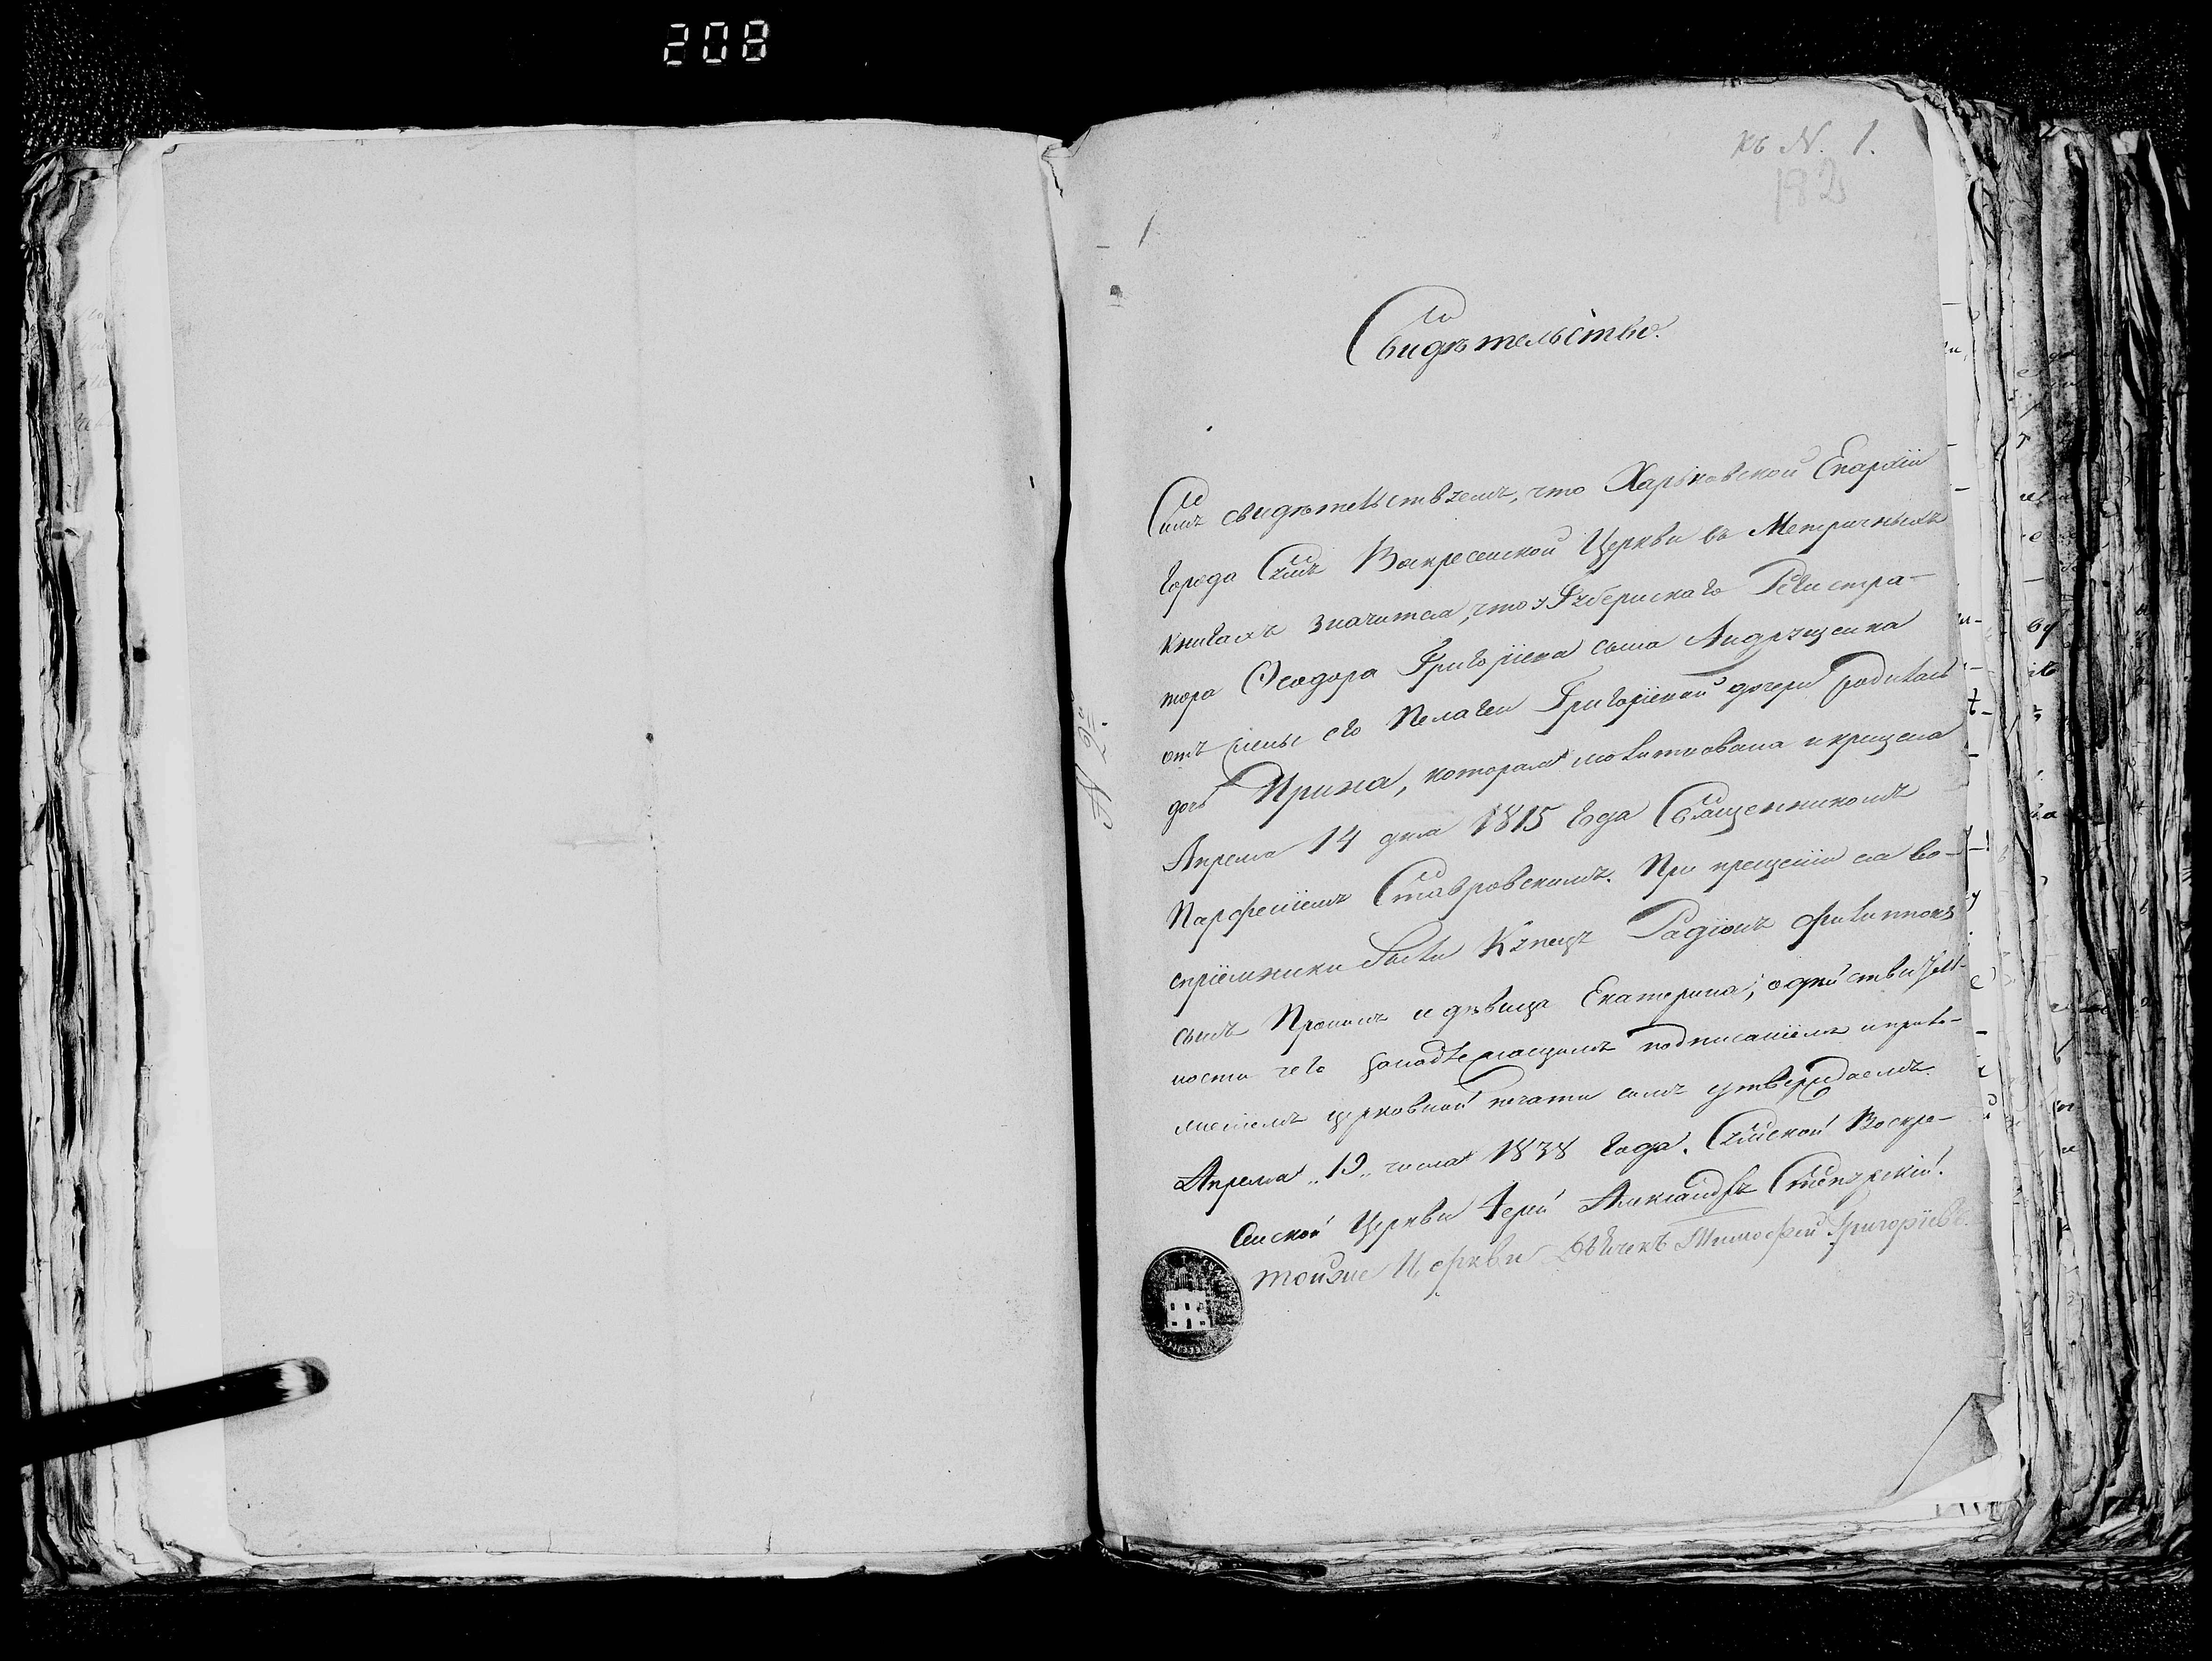 208
къ N. 1.
192
1.
Свидѣтельство.
Симъ свидѣтельствуемъ, что Харьковской Епархіи
города Сумъ Воскресенской Церкви въ Метричныхъ
книгахъ значится, что у Губернскаго Регистра-
тора Ѳеодора Григоріева сына Андрущенка
отъ жены его Пелагеи Григоріевой дочери родилась
дочь Ирина, которая молитвована и крещена
Апреля 14 дня 1815 года Священникомъ
Парфеніемъ Ставровскимъ. При крещеніи ея во-
спріемники были Купецъ Радіонъ Филиповъ
сынъ и дѣвица Екатерина; о дѣйствитель-
ности чего занадлежащимъ подписаніемъ и прило-
женіемъ церковной печати симъ утверждаемъ.
Апреля „19„ числа 1838 года. Сумской Воскре-
сенской Церкви Іерей Александръ
тойже Церкви Тимофей Григоріевъ